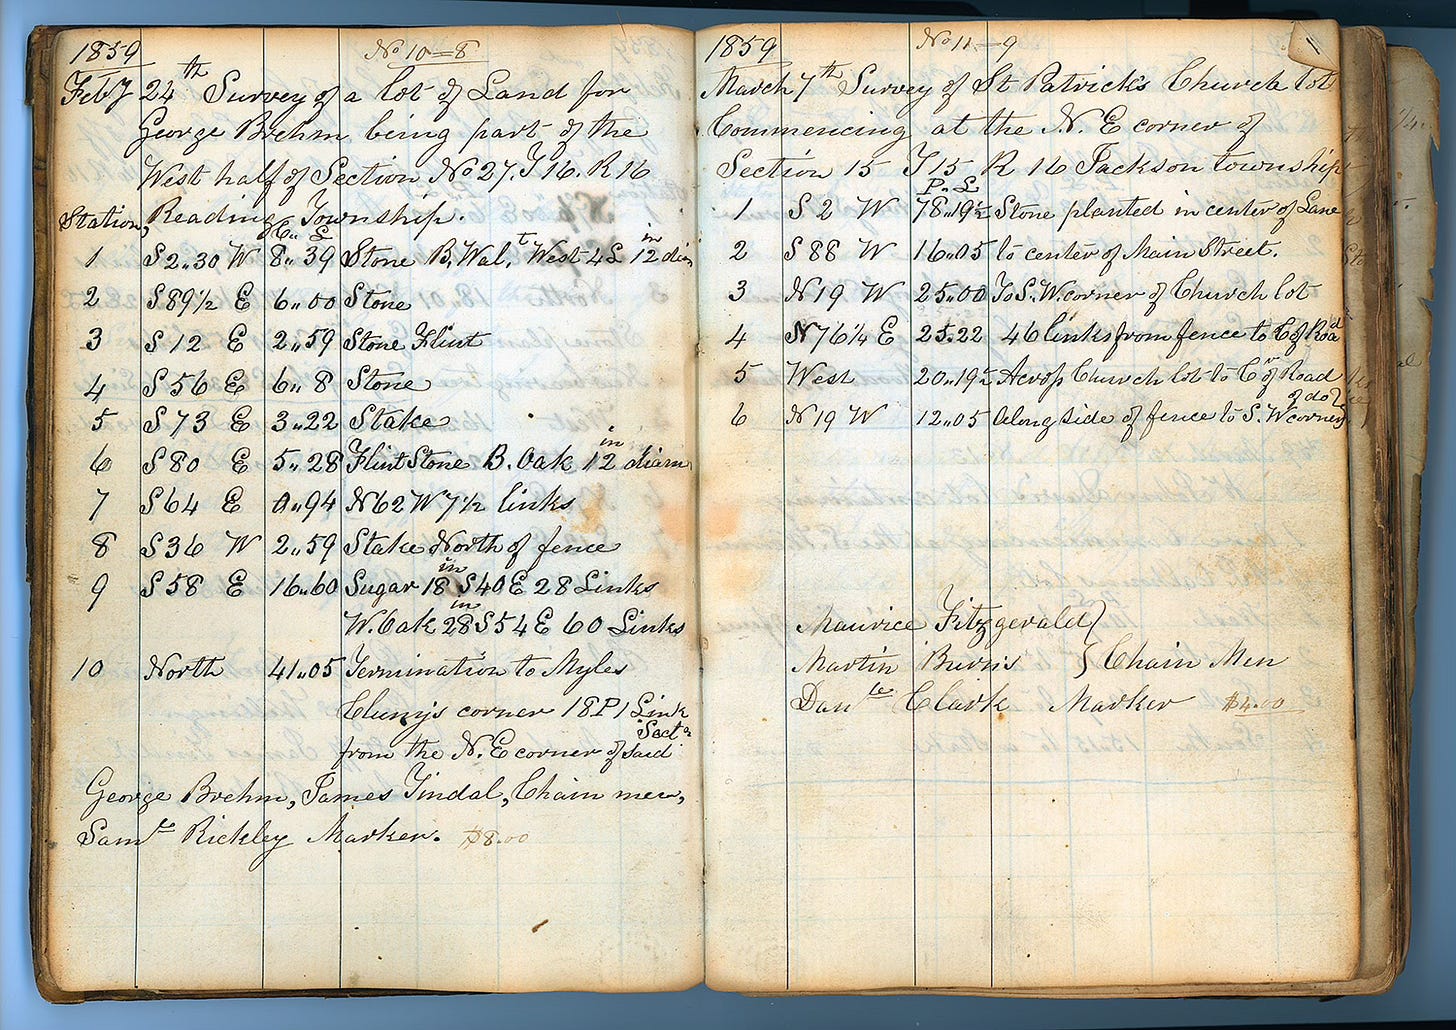 1859 No 10=8
Feby 24th Survey of a lot of Land for
George Brehm, being part of the
West half of Section No 27. T 16. R 16
Station, Reading Township.
Ch.. L
1 S 2..30 W 8..39 Stone B. Wal.t West 4 L 12 in diam
2 S 89 1/2 E 6..00 Stone
3 S 12 E 2..59 Stone Flint
4 S 56 E 6..8 Stone
5 S 73 E 3..22 Stake
6 S 80 E 5..28 Flint Stone B. Oak 12 in diam
7 S 64 E 0..94 N 62 W 7 1/2 links
8 S 36 W 2..59 Stake North of fence
9 S 58 E 16..60 Sugar 18 in S 40 E 28 Links
W. Oak 28 in S 54 E 60 Links
10 North 41..05 Termination to Myles
Cluny's corner 18 P 1 Link
from the N. E corner of said Sect.
George Brehm, James Tindal, Chain men,
Samle Rickley Marker. $8.00
1859 No 11=9
March 7th Survey of St Patrick's Church lot
Commencing at the N. E corner of
Section 15 T 15 R 16 Jackson township
P.. L
1 S 2 W 78..19 1/2 Stone planted in center of Lane
2 S 88 W 16..05 to center of Main Street.
3 N 19 W 25..00 To S. W. corner of Church lot
4 N 76 1/4 E 25.22 46 links from fence to C of Road
5 West 20..19 Across Church lot to Cr of Road
6 N 19 W 12..05 Along side of fence to S. W corner of do
Maurice Fitzgerald }
Martin Burns } Chain Men
Danle Clark Marker $4.00